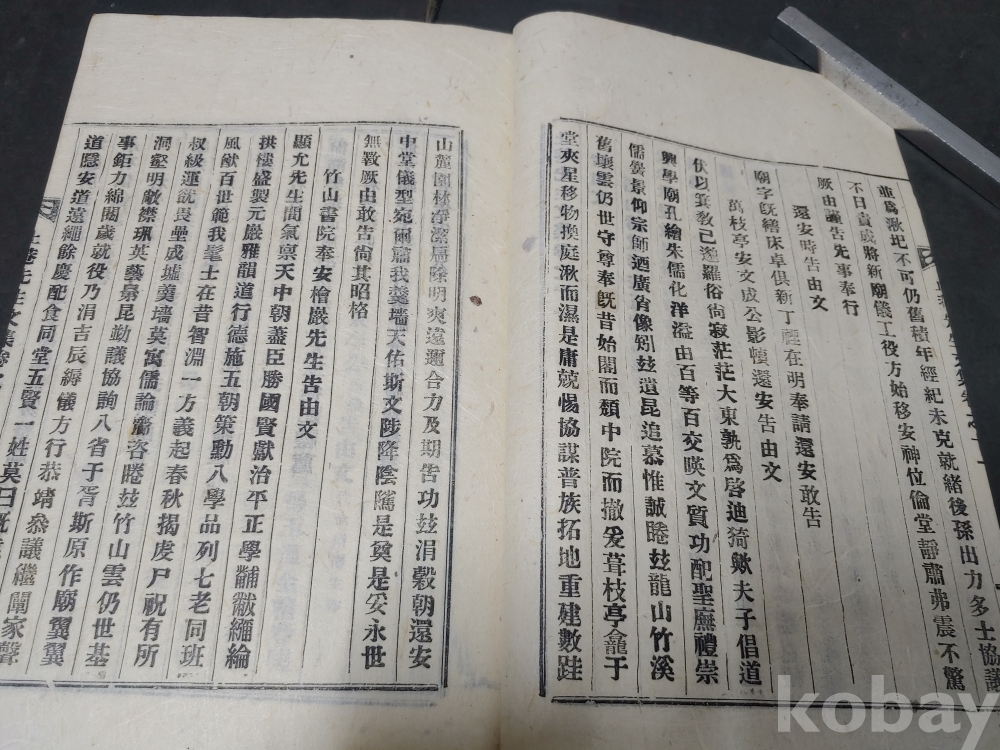 並爲湫圯不可仍舊積年經紀未克就緒後孫出力多士協議
不日責成將新廟儀工役方始移安神位倫堂靜肅弗震不驚
厥由謹告先事奉行
還安時告由文
廟宇旣繕床卓俱新丁腥在明奉請還安敢告
萬枝亭安文成公影幀還安告由文
伏以箕敎已邃羅俗尙寂茫茫大東孰爲啓迪猗歟夫子倡道
興學廟孔繪朱儒化洋溢由百等百交暎文質功配聖廡禮崇
儒黌景仰宗師迺廣省像矧玆遺昆追慕惟誠睠玆龍山竹溪
舊壤雲仍世守尊奉旣昔始闇而頹中院而撤爰葺枝亭龕于
堂夾星移物換庭湫而濕是庸兢惕協謀普族拓地重建數跬
山麓園林淨潔扃除明爽遠邇合力及期告功玆涓穀朝還安
中堂儀型宛爾肅我羹墻天佑斯文陟降陰隲是奠是妥永世
無斁厥由敢告尙其昭格
竹山書院奉安檜嚴先生告由文
顯允先生間氣禀天中朝藎臣勝國賢獻治平正學黼黻緬綸
拱樓盛製元嚴雅韻道行德施五朝策勳八學品列七老同班
風猷百世範我髦士在昔智淵一方義起春秋揭虔尸祝有所
叔級運訧畏壘成墟羹墻莫寓儒論齎咨睠玆竹山雲仍世基
洞壑明敞襟珮英藝暴昆勤議協詢八省于胥斯原作廟翼翼
事鉅力綿閱歲就役乃涓吉辰縟儀方行恭靖叅議繼闡家聲
道隱安道遠繩餘慶配食同堂五賢一姓莫曰旣